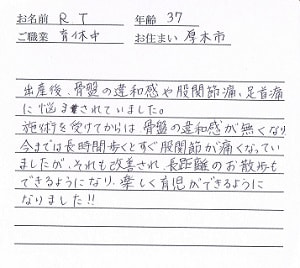 お名前 R T 年齢 37
ご職業 育休中 お住まい 厚木市
出産後、骨盤の違和感や股関節痛、足首痛
に悩まされていました。
施術を受けてからは骨盤の違和感が無くなり
今までは長時間歩くとすぐ股関節が痛くなってい
ましたが、それも改善され、長距離のお散歩も
できるようになり、楽しく育児ができるように
なりました!!